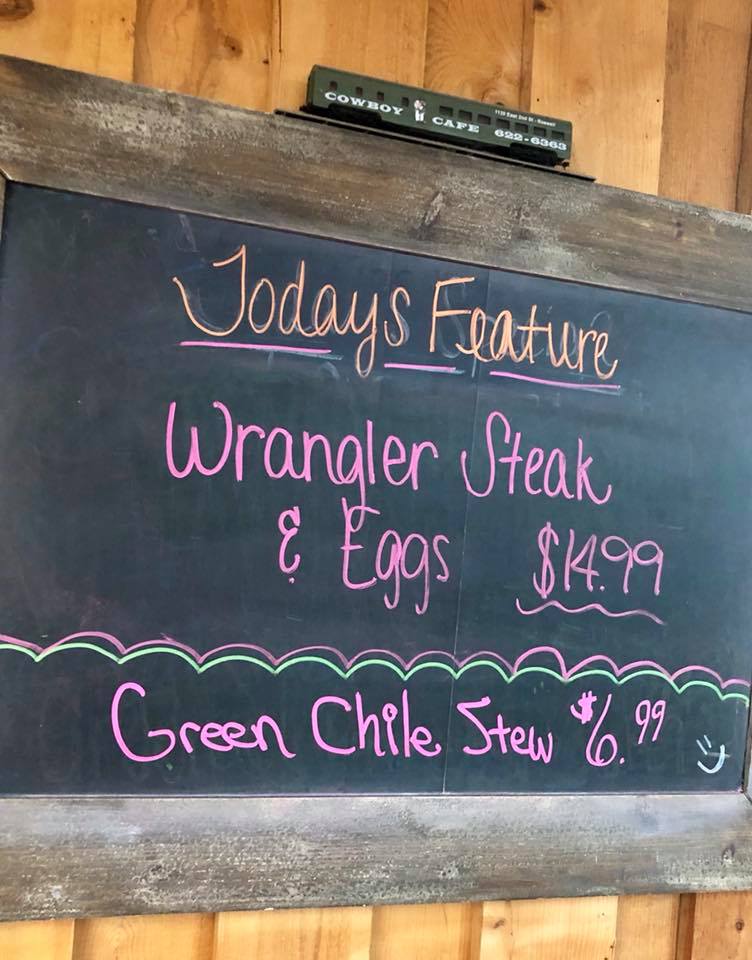 COWBOY CAFE 1120 East 2nd St - Roswell
622-6363
Todays Feature
Wrangler Steak
& Eggs $14.99
Green Chile Stew $6.99